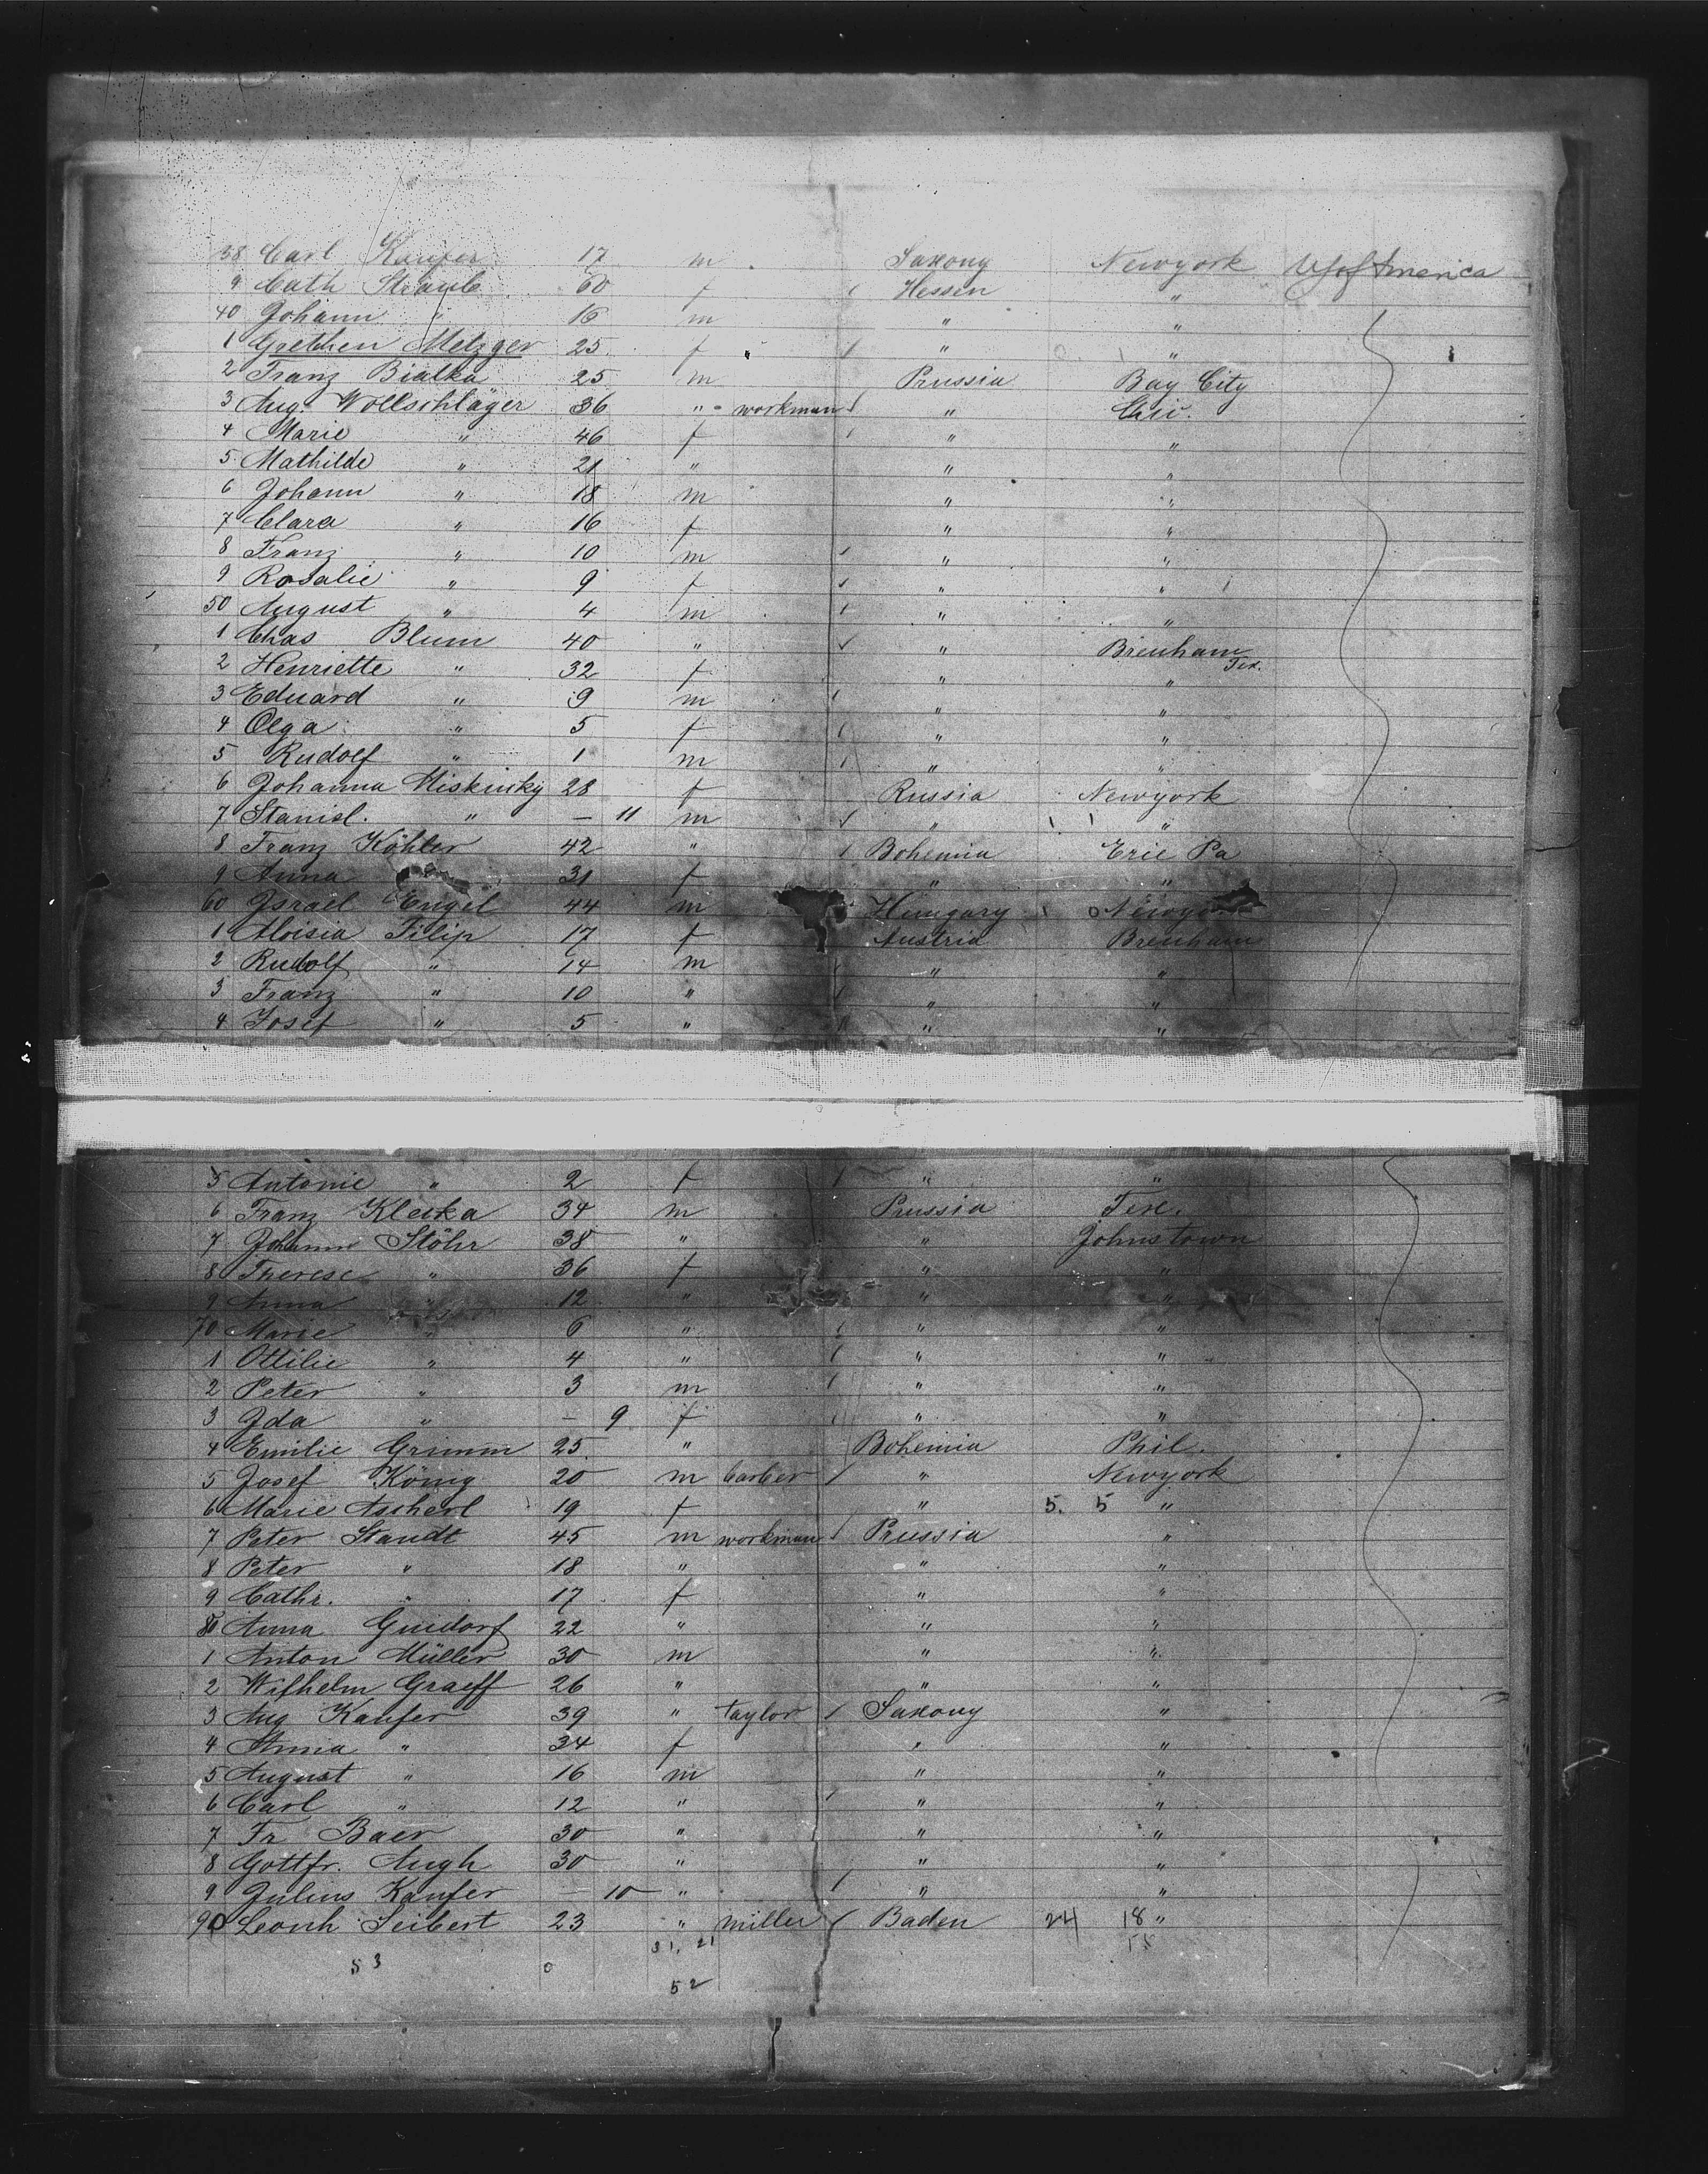 38 Carl Kaufer 17 m Saxony Newyork U S of America
9 Cath Straub 60 f Hessen "
40 Johann " 16 m " "
1 Grethen Metzger 25 f " "
2 Franz Bialka 25 m Prussia Bay City
3 Aug. Wollschläger 36 " workman " Cin.
4 Marie " 46 f " "
5 Mathilde " 21 " " "
6 Johann " 18 m " "
7 Clara " 16 f " "
8 Franz " 10 m " "
9 Rosalie " 9 f " "
50 August " 4 m " "
1 Chas Blum 40 " " Brenham Tex.
2 Henriette " 32 f " "
3 Eduard " 9 m " "
4 Olga " 5 f " "
5 Rudolf " 1 m " "
6 Johanna Miskinky 28 f Russia Newyork
7 Stanisl. " – 11 m " "
8 Franz Köhler 42 " Bohemia Erie Pa
9 Anna 31 f " "
60 Israel Engel 44 m Hungary Newyork
1 Aloisia Filip 17 f Austria Brenham
2 Rudolf " 14 m " "
3 Franz " 10 " " "
4 Josef " 5 " " "
5 Antonie " 2 f " "
6 Franz Kleska 34 m Prussia Tex.
7 Johann Stöhr 38 " " Johnstown
8 Therese " 36 f " "
9 Anna " 12 " " "
70 Marie " 6 " " "
1 Ottilie " 4 " " "
2 Peter " 3 m " "
3 Ida " – 9 f " "
4 Emilie Grimm 25 " Bohemia Phil.
5 Josef König 20 m barber " Newyork
6 Marie Ascherl 19 f " 5. 5 "
7 Peter Staudt 45 m workman Prussia "
8 Peter " 18 " " "
9 Cathr. " 17 f " "
80 Anna Guidorf 22 " " "
1 Anton Müller 30 m " "
2 Wilhelm Graeff 26 " " "
3 Aug Kaufer 39 " taylor Saxony "
4 Anna " 34 f " "
5 August " 16 m " "
6 Carl " 12 " " "
7 Fr Baer 30 " " "
8 Gottfr. Augh 30 " " "
9 Julius Kaufer – 10 " " "
90 Leonh Seibert 23 " miller Baden 24 18 "
31, 21
53 0
52